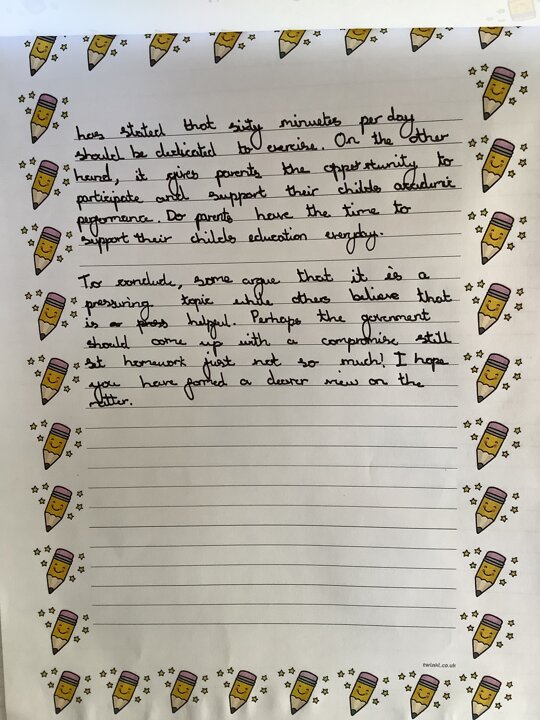 has stated that sixty minuetes per day
should be dedicated to exercise. On the other
hand, it gives parents the opportunity to
participate and support their childs academic
performance. Do parents have the time to
support their childs education everyday.
To conclude, some argue that it is a
pressuring topic while others believe that
is helpful. Perhaps the goverment
should come up with a compromise still
set homework just not so much! I hope
you have formed a clearer view on the
matter.
twinkl.co.uk